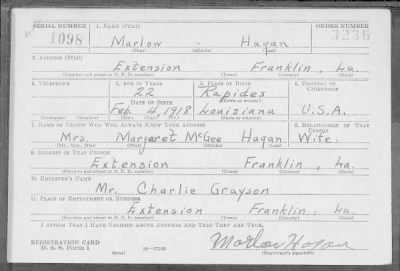 SERIAL NUMBER 1. NAME (Print) ORDER NUMBER
1098 Marlow - Hagan 3236
(First) (Middle) (Last)
2. ADDRESS (Print)
Extension Franklin, La.
(Number and street or R. F. D. number) (Town) (County) (State)
3. TELEPHONE 4. AGE IN YEARS 5. PLACE OF BIRTH 6. COUNTRY OF CITIZENSHIP
22 Rapides
DATE OF BIRTH (Town or county)
Feb. 4, 1918 Louisiana U.S.A.
(Exchange) (Number) (Mo.) (Day) (Yr.) (State or country)
7. NAME OF PERSON WHO WILL ALWAYS KNOW YOUR ADDRESS 8. RELATIONSHIP OF THAT PERSON
Mrs. Margaret McGee Hagan Wife.
(Mr., Mrs., Miss) (First) (Middle) (Last)
9. ADDRESS OF THAT PERSON
Extension Franklin, La.
(Number and street or R. F. D. number) (Town) (County) (State)
10. EMPLOYER'S NAME
Mr. Charlie Grayson
11. PLACE OF EMPLOYMENT OR BUSINESS
Extension Franklin, La.
(Number and street or R. F. D. number) (Town) (County) (State)
I AFFIRM THAT I HAVE VERIFIED ABOVE ANSWERS AND THAT THEY ARE TRUE.
REGISTRATION CARD Marlow Hagan
D. S. S. FORM 1 (over) 16-17105 (Registrant's signature)